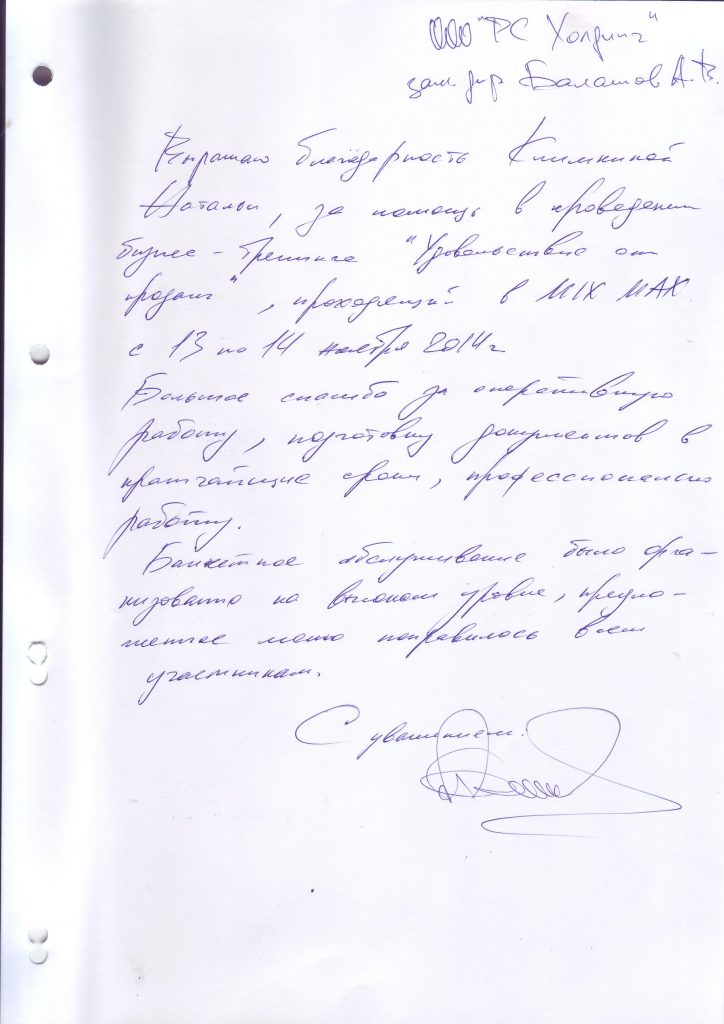 ООО "РС Холдинг"
зам. дир Балашов А.В.
Выражаю благодарность Климкиной
Натальи, за помощь в проведении
бизнес-тренинга "Удовольствие от
продаж", проходящий в MIX MAX
с 13 по 14 ноября 2014г
Большое спасибо за оперативную
работу, подготовку документов в
кратчайшие сроки, профессиональную
работу.
Банкетное обслуживание было орга-
низованно на высоком уровне, предло-
женное меню понравилось всем
участникам.
С уважением.